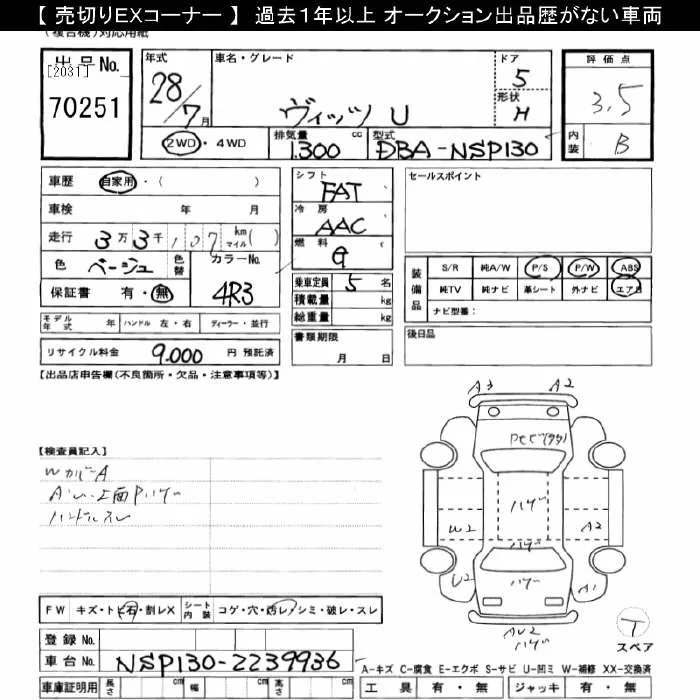 【 売切りEXコーナー 】 過去1年以上 オークション出品歴がない車両
(複合機)対応用紙
出品No.
[2031]
70251
年式
28/7月
車名・グレード
ヴィッツ U
ドア
5
形状
H
評価点
3.5
内装
B
2WD・4WD
排気量
1.300 cc
型式
DBA-NSP130
車歴 自家用・( )
車検 年 月
走行 3万3千107 km マイル( )
色 ベージュ 色替 カラーNo.
4R3
保証書 有・無
シフト
FAT
冷房
AAC
燃料
G
乗車定員 5 名
積載量 kg
総重量 kg
書類期限
月 日
セールスポイント
装備品
S/R 純A/W P/S P/W ABS
純TV 純ナビ 革シート 外ナビ エアB
ナビ型番:
後日品
モデル年式 年 ハンドル 左・右 ディーラー・並行
リサイクル料金 9.000 円 預託済
【出品店申告欄(不良箇所・欠品・注意事項等)】
【検査員記入】
WカバーA
上面Pハゲ
ハンドルスレ
A3 A2
ハゲ
W2 A2
ハゲ
U2 A1
ハゲ
T
スペア
FW キズ・トビ石・割レX シート内装 コゲ・穴・汚レ・シミ・破レ・スレ
登録No.
車台No. NSP130-2239936
車庫証明用 長さ cm 幅 cm 高さ cm
A-キズ C-腐食 E-エクボ S-サビ U-凹ミ W-補修 XX-交換済
工具 有・無 ジャッキ 有・無